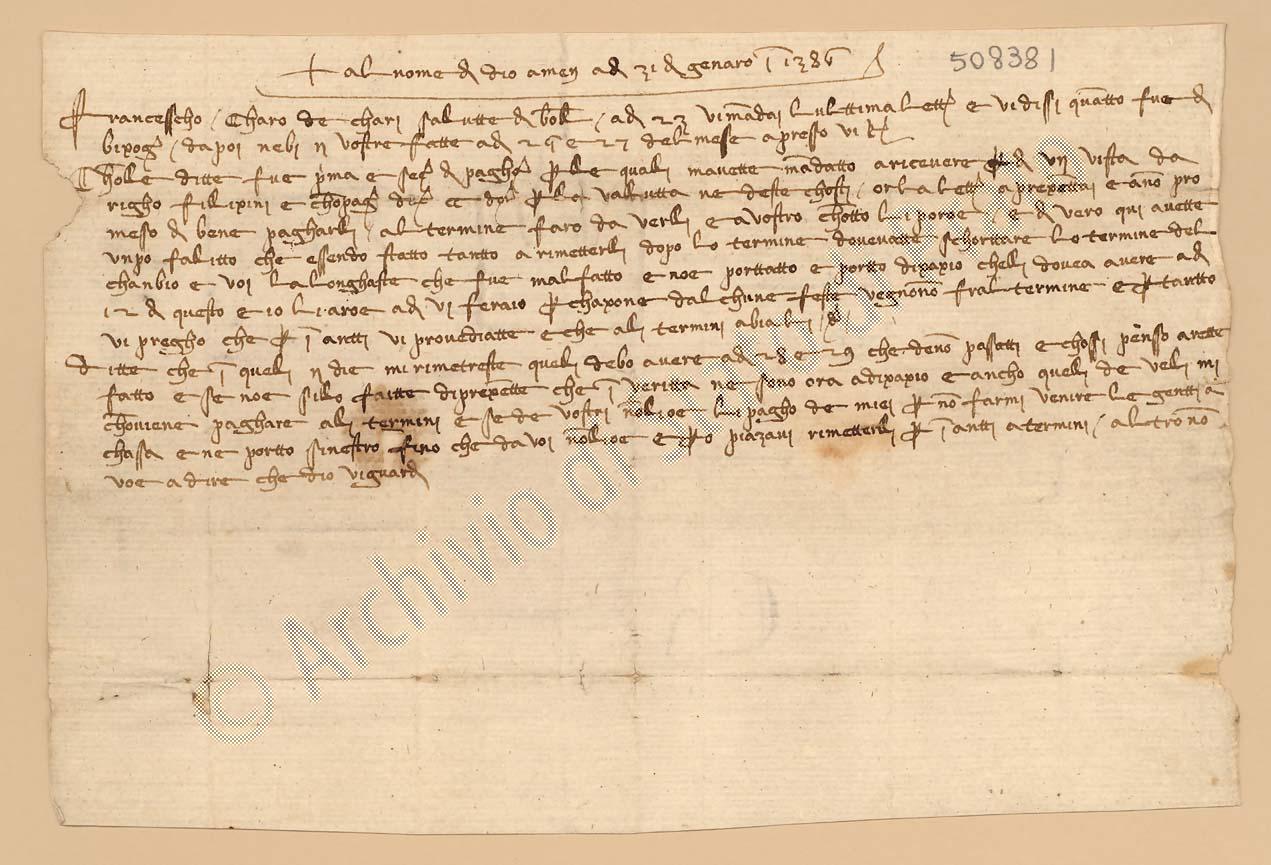 + al nome d dio amen ad 31 d genaro 1386
508381
Francesscho Charo de chari salutte d bol / ad 23 vi mandai lulttima lett e vi dissi quatto fue d
bixog / da poi nebi n vostre fatte ad 24 e 27 del mese apresso vi
Cholle ditte fue pma e se d pagh p le quali mavette madatto a ricevere p d vista da
righo fillipini e chopag p la valutta ne deste chosti / or la lett a prexettai e ano pro
messo d bene pagharli / al termine faro da verlli e a vostro chotto li poroe / e d vero qui avette
unpo fallitto che essendo statto tantto a rimetterlli dopo lo termine dovevatte schorttare lo termine del
chanbio e voi la longhaste che fue mal fatto e noe porttatto e portto dixaxio chelli dovea avere ad
12 d questo e io li aroe ad VI feraio p chaxone dal chune feste vegnono fral termine e p tantto
vi pregho che p i antti vi provediatte e che ali termini abia li d
ditte che i queli n die mi rimetreste queli debo avere ad 28 e 29 che deno passatti e chossi pensso arette
fatto e se noe sillo faitte di prexette che i veritta ne sono ora a dixaxio e ancho queli de veli mi
choviene paghare ali termini e se de vostri nolli oe li pagho de miei p no farmi venire le gentti a
chassa e ne portto ssinestro fino che da voi nolli oe e po piazavi rimetterlli p i antti a termini / altro no
voe a dire che dio vi guard
© Archivio di Stato di Prato